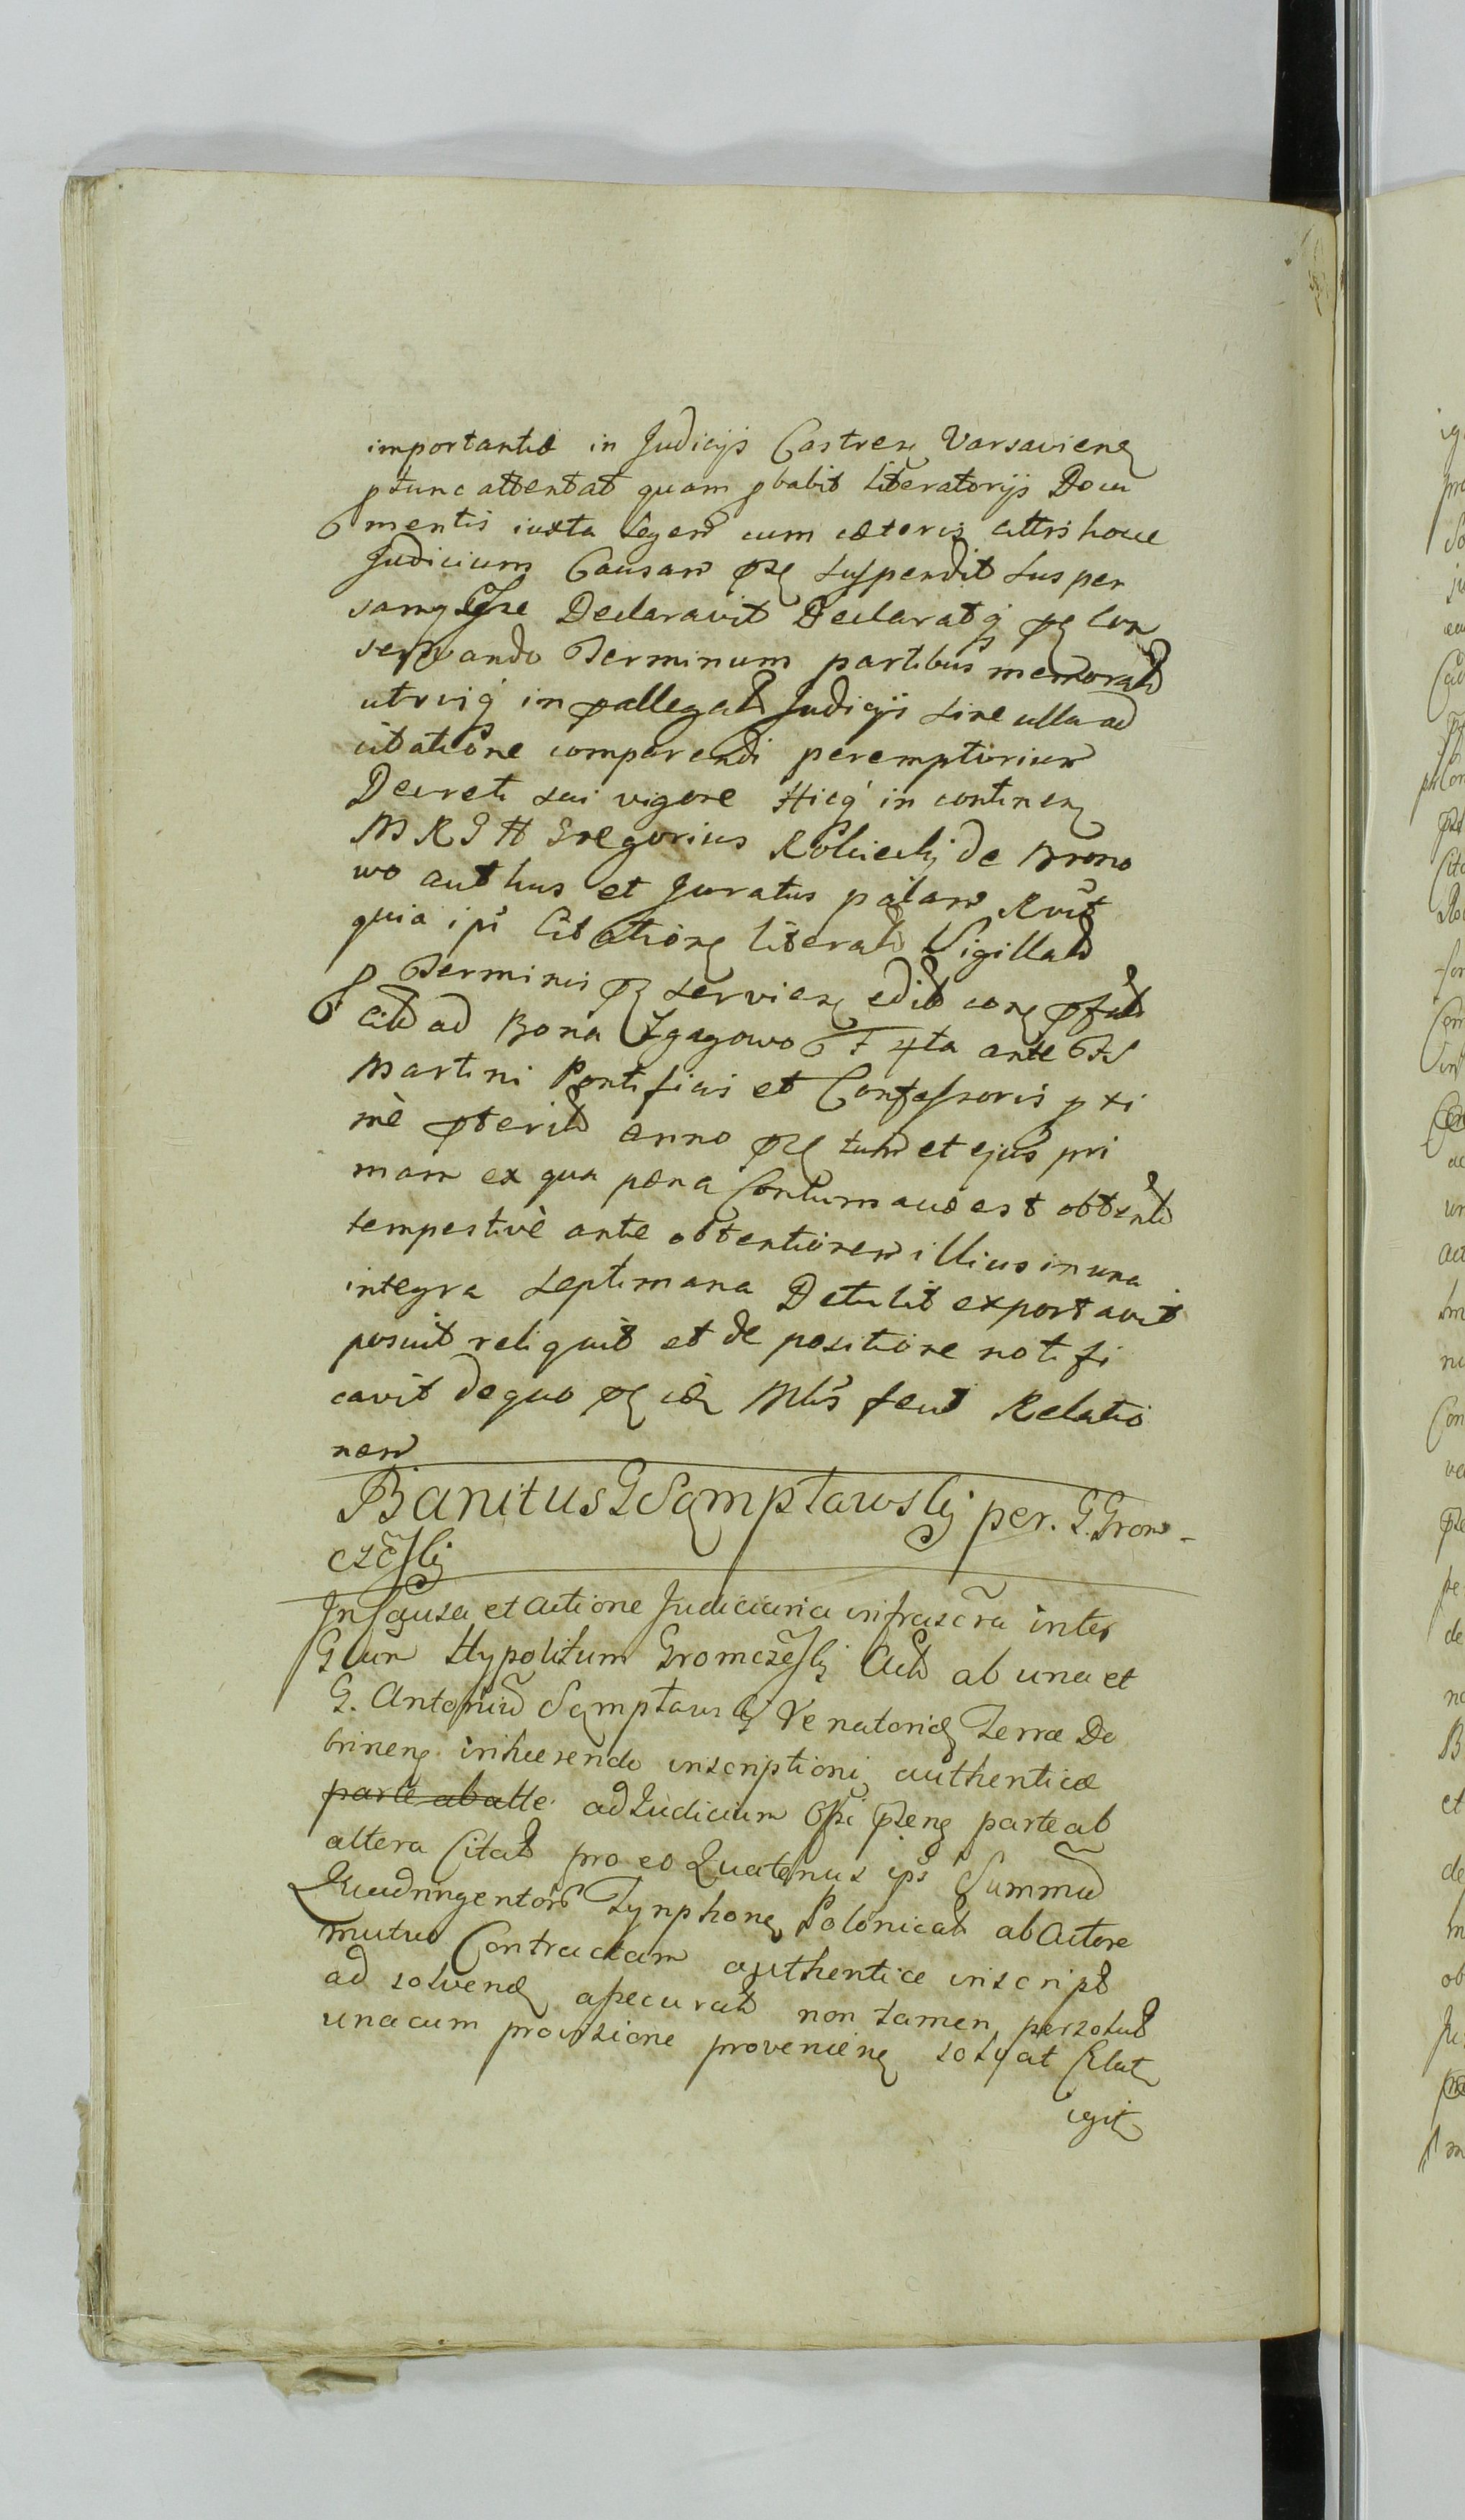 importantiæ in Judicijs Castren Varsavien
ptunc attentat quam pbabit literatorijs Docu
mentis iuxta Legem cum cæteris attis hocce
Judicium Causam pze suspendit suspen
samq Esse Declaravit Declaratq pz Con
servando Terminum partibus memorat
utrisq in pallegat Judicijs sine ulla ad
citatione comparendi peremptorium
Decreti sui vigore Hicq in continen
M R G H Gregorius de Brono
wo authus et Juratus palam Rvit
quia ipe Citation literat Sigillat
p Terminis pz servien edit con
Citt ad Bona Zgagowo F 4ta ante F S
Martini Pontificis et Confessoris pxi
mè pterit anno pze tum et ejus pri
mam ex qua pæna Contumaciæ est obtent
tempestivè ante obtentionem illius in una
integra septimana Detulit exportavit
posuit reliquit et de positione notifi
cavit de quo pz Mlis fecit Relatio
nem
Banitus G Sęmptawski per. G. Grom-
czẽski
In Causa et Actione Judiciaria infrascra inter
Gsum Hypolitum Gromczẽski Act ab una et
G. Antonium Sęmptawski Venatorid Terræ Do
brinen inhærendo inscriptioni authenticæ
parte ab alte ad Judicium Offi pzens parte ab
altera Citat pro eo Quatenus ips Summã
Quadringentorũ Tynphon Polonicał ab Actore
mutuo Contractam authentice inscript
ad solvend assecurat non tamen persolut
unacum provisione provenien solvat Citat
igit